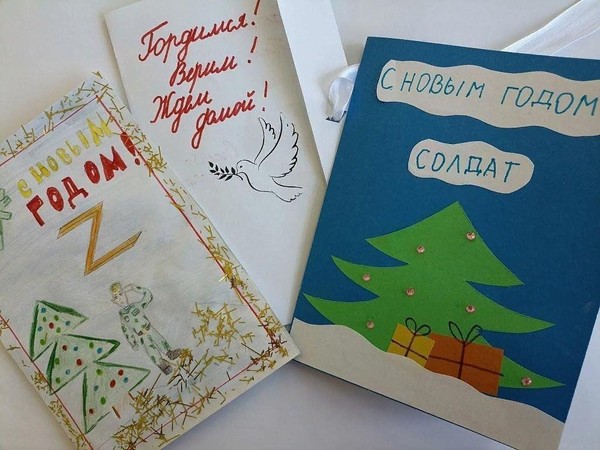 С НОВЫМ
ГОДОМ!
Z
Гордимся!
Верим!
Ждём
домой!
С НОВЫМ ГОДОМ
СОЛДАТ